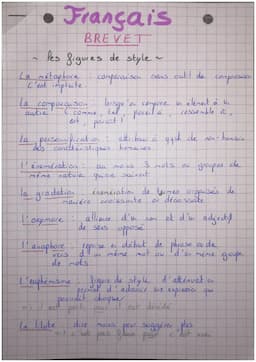 Français
BREVET
~ les figures de style ~
La métaphore : comparaison sans outil de comparaison
C'est implicite
La comparaison : lorsqu'on compare un élément à un
autre (comme, tel, pareil à, ressemble à,
La personnification : attribue à qqch de non-humain
des caractéristiques humaines
L'énumération : au moins 3 mots ou groupes de
même nature qui se suivent
La gradation : énumération de termes organisés de
manière croissante ou décroissante
L'oxymore : alliance d'un nom et d'un adjectif
de sens opposé
L'anaphore : reprise en début de phrase ou de
vers d'un même mot ou d'un même groupe
de mots
L'euphémisme : figure de style d'atténuation
permet d'adoucir une expression qui
pourrait choquer
La litote : dire moins pour suggérer plus